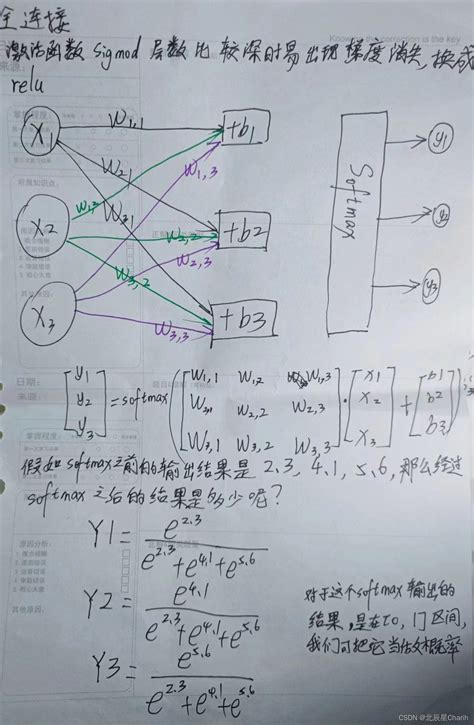 全连接
激活函数 sigmod 层数比较深时易出现梯度消失,换成
relu
x1 w1,1 +b1 y1
w2,1 w1,3
w1,2 w3,1
x2 w2,2 +b2 Softmax y2
w2,3
w3,2
x3 w3,3 +b3 y3
日期:
来源:
[y1 y2 y3] = softmax ( [w1,1 w1,2 w1,3
w2,2 w2,3
w3,1 w3,2 w3,3] · [x1 x2 x3] + [b1 b2 b3] )
假如softmax之前的输出结果是 2.3, 4.1, 5.6, 那么经过
softmax 之后的结果是多少呢?
Y1 = e^2.3 / (e^2.3 + e^4.1 + e^5.6)
Y2 = e^4.1 / (e^2.3 + e^4.1 + e^5.6)
Y3 = e^5.6 / (e^2.3 + e^4.1 + e^5.6)
对于这个softmax输出的
结果,是在[0,1]区间,
我们可把它当作概率
原因分析:
其他原因:
CSDN @北辰星Charih